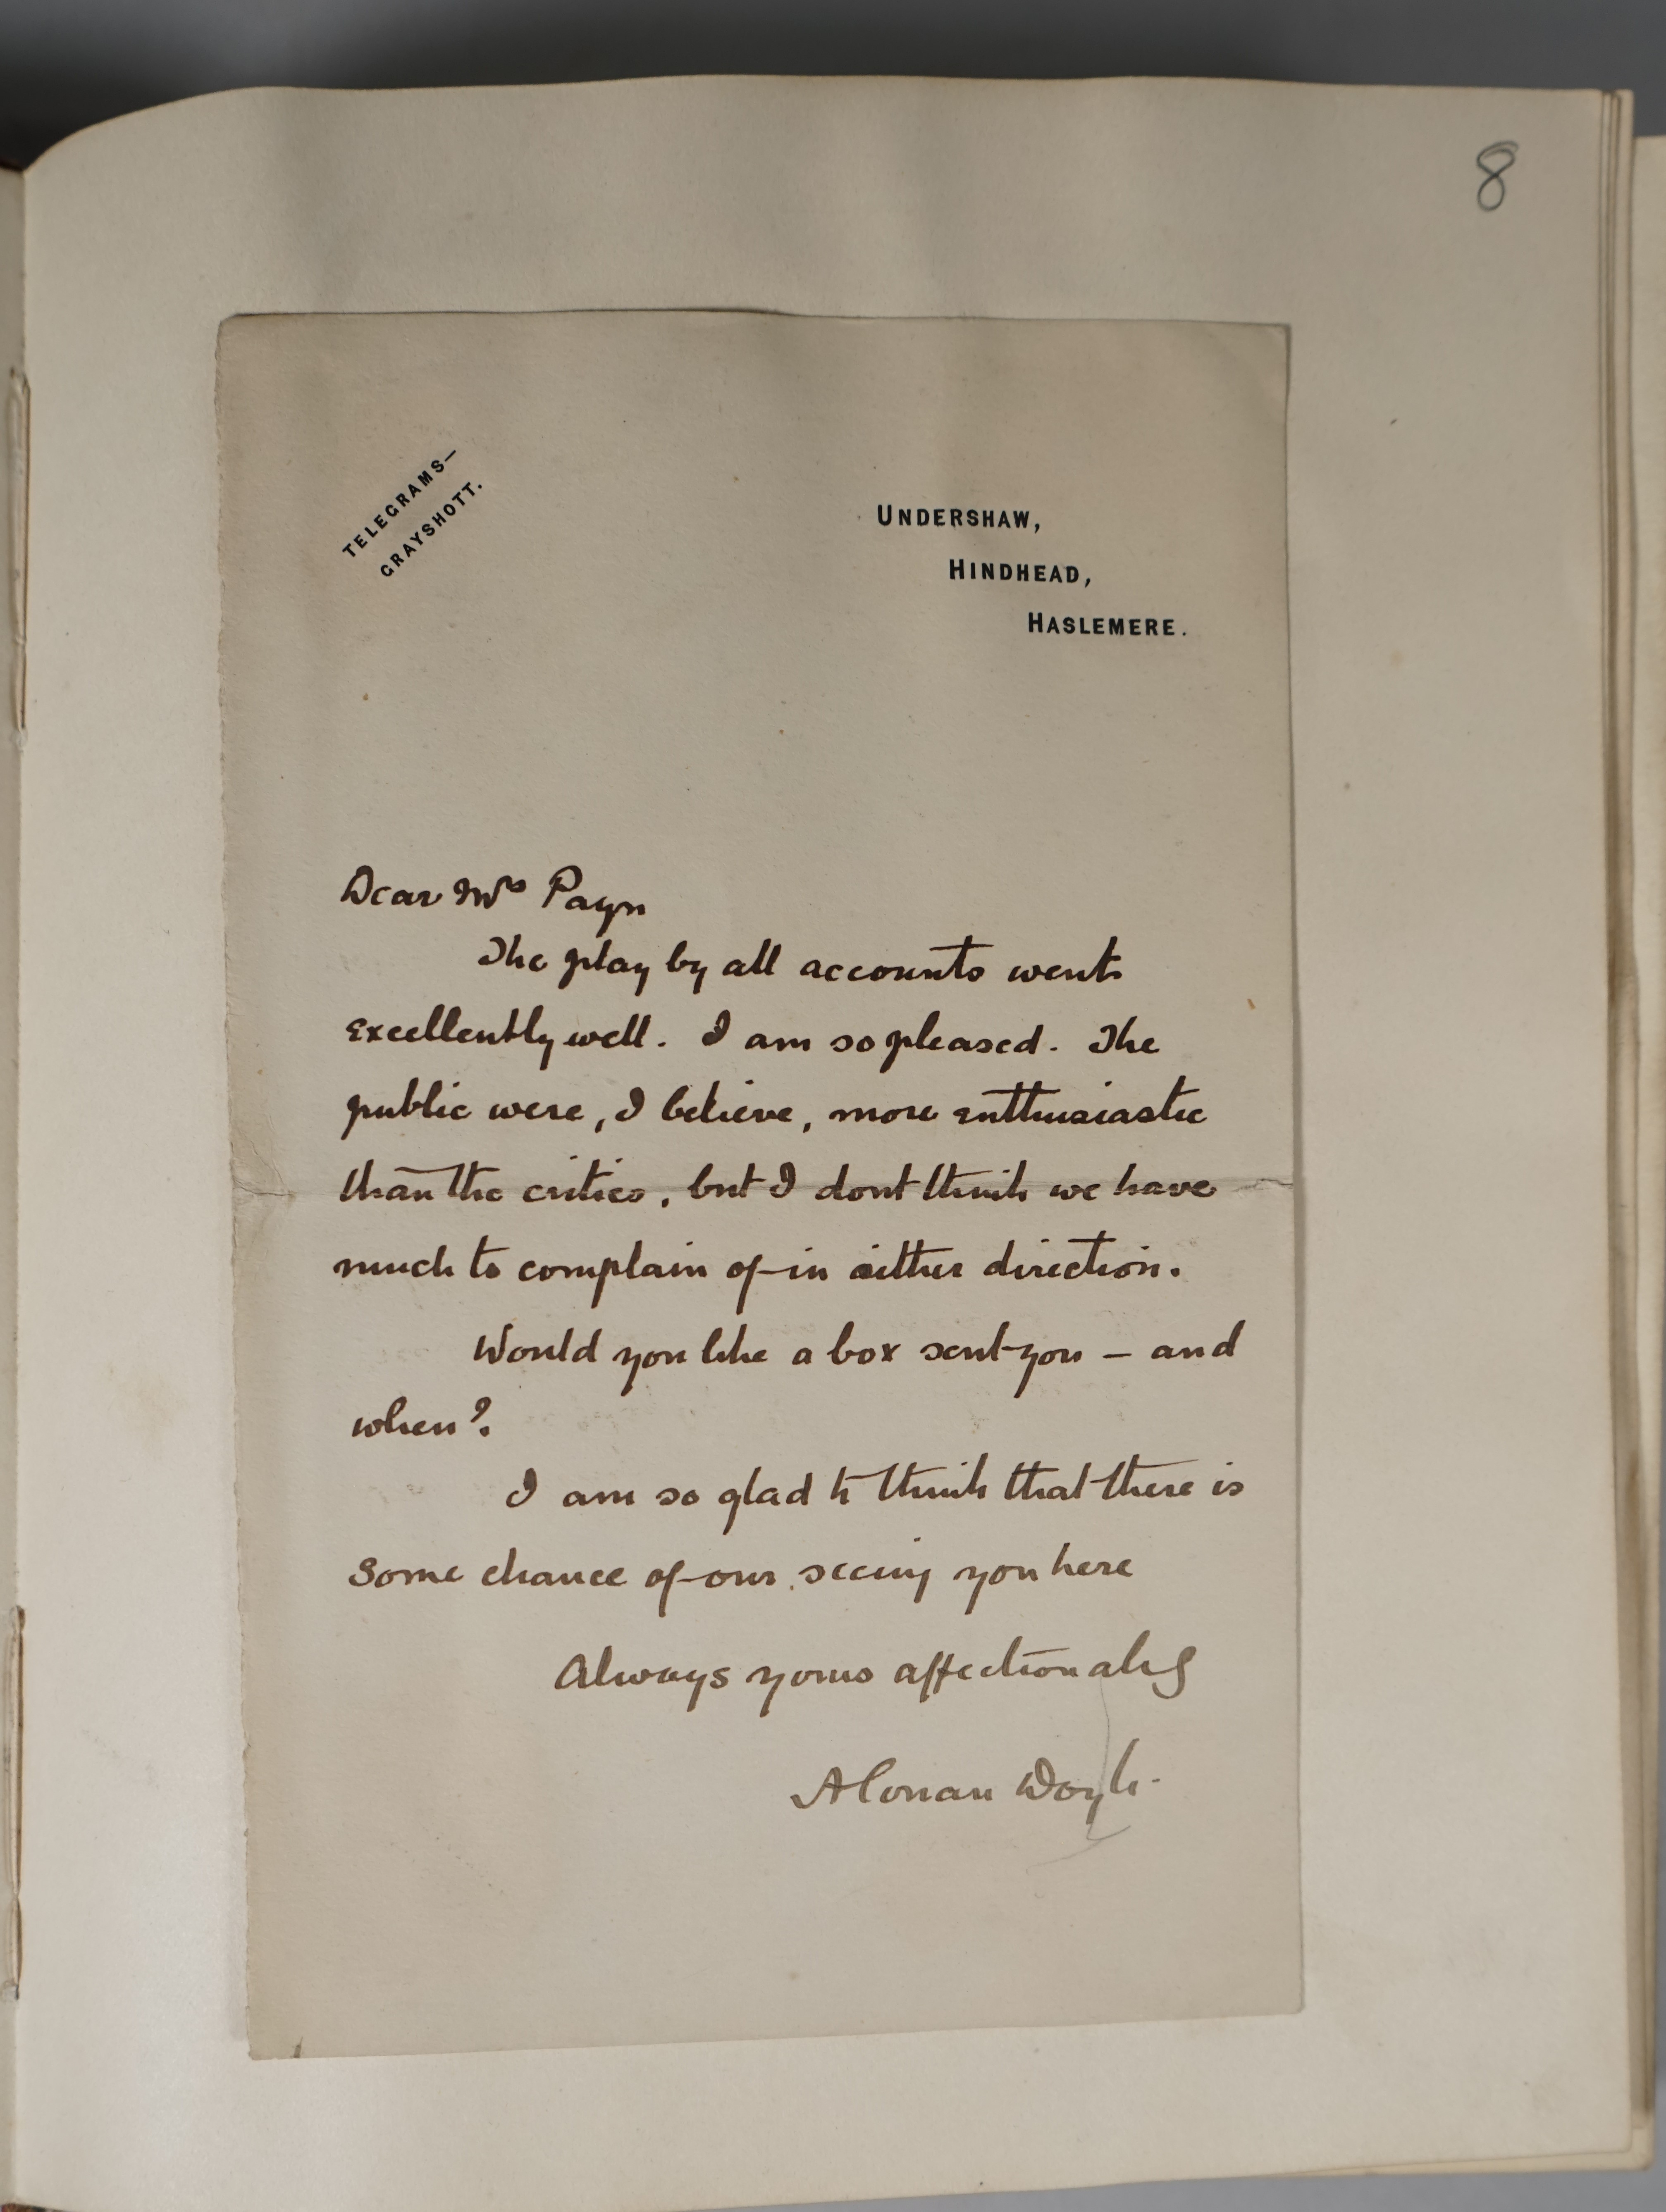 8
TELEGRAMS—
GRAYSHOTT.
UNDERSHAW,
HINDHEAD,
HASLEMERE.
Dear Mrs Payn
The play by all accounts went
excellently well. I am so pleased. The
public were, I believe, more enthusiastic
than the critics, but I dont think we have
much to complain of in either direction.
Would you like a box sent you — and
when?
I am so glad to think that there is
some chance of our seeing you here
Always yours affectionately
A Conan Doyle.